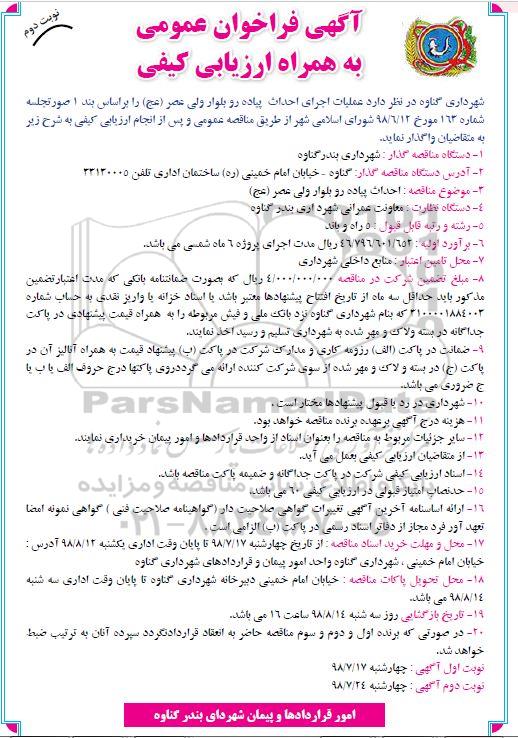 نوبت دوم
آگهی فراخوان عمومی
به همراه ارزیابی کیفی
شهرداری گناوه در نظر دارد عملیات اجرای احداث پیاده رو بلوار ولی عصر (عج) را براساس بند ۱ صورتجلسه
شماره ۱۶۳ مورخ ۹۸/۶/۱۲ شورای اسلامی شهر از طریق مناقصه عمومی و پس از انجام ارزیابی کیفی به شرح زیر
به متقاضیان واگذار نماید.
۱- دستگاه مناقصه گذار : شهرداری بندرگناوه
۲- آدرس دستگاه مناقصه گذار: گناوه - خیابان امام خمینی (ره) ساختمان اداری تلفن ۳۳۱۳۰۰۰۵
۳- موضوع مناقصه : احداث پیاده رو بلوار ولی عصر (عج)
۴- دستگاه نظارت : معاونت عمرانی شهرداری بندر گناوه
۵- رشته و رتبه قابل قبول : ۵ راه و باند
۶- برآورد اولیه : ۴۶/۷۹۶/۶۰۱/۶۵۲ ریال مدت اجرای پروژه ۶ ماه شمسی می باشد.
۷- محل تامین اعتبار : منابع داخلی شهرداری
۸- مبلغ تضمین شرکت در مناقصه ۴/۰۰۰/۰۰۰/۰۰۰ ریال که بصورت ضمانتنامه بانکی که مدت اعتبارتضمین
مذکور باید حداقل سه ماه از تاریخ افتتاح پیشنهادها معتبر باشد یا اسناد خزانه یا واریز نقدی به حساب شماره
۳۱۰۰۰۰۱۸۸۴۰۰۳ که بنام شهرداری گناوه نزد بانک ملی و فیش مربوطه را به همراه قیمت پیشنهادی در پاکت
جداگانه در بسته ولاک و مهر شده به شهرداری تسلیم و رسید اخذ نمایند.
۹- ضمانت در پاکت (الف) رزومه کاری و مدارک شرکت در پاکت (ب) پیشنهاد قیمت به همراه آنالیز آن در
پاکت (ج) در بسته و لاک و مهر شده از سوی شرکت کننده ارائه می گرددروی پاکتها درج حروف الف یا ب یا
ج ضروری می باشد.
۱۰- شهرداری در رد یا قبول پیشنهادها مختار است .
۱۱- هزینه درج آگهی برعهده برنده مناقصه خواهد بود.
۱۲- سایر جزئیات مربوط به مناقصه را بعنوان اسناد از واحد قراردادها و امور پیمان خریداری نمایند.
۱۳- از متقاضیان ارزیابی کیفی بعمل می آید.
۱۴- اسناد ارزیابی کیفی شرکت در پاکت جداگانه و ضمیمه پاکت مناقصه باشد.
۱۵- حدنصاب امتیاز قبولی در ارزیابی کیفی ۶۰ می باشد.
۱۶- ارائه اساسنامه آخرین آگهی تغییرات گواهی صلاحیت دار (گواهینامه صلاحیت فنی ) گواهی نمونه امضا
تعهد آور فرد مجاز از دفاتر اسناد رسمی در پاکت (ب) الزامی است .
۱۷- محل و مهلت خرید اسناد مناقصه : از تاریخ چهارشنبه ۹۸/۷/۱۷ تا پایان وقت اداری یکشنبه ۹۸/۸/۱۲ آدرس :
خیابان امام خمینی ، شهرداری گناوه واحد امور پیمان و قراردادهای شهرداری گناوه
۱۸- محل تحویل پاکات مناقصه : خیابان امام خمینی دبیرخانه شهرداری گناوه تا پایان وقت اداری سه شنبه
۹۸/۸/۱۴ می باشد.
۱۹- تاریخ بازگشایی روز سه شنبه ۹۸/۸/۱۴ ساعت ۱۶ می باشد.
۲۰- در صورتی که برنده اول و دوم و سوم مناقصه حاضر به انعقاد قراردادنگردد سپرده آنان به ترتیب ضبط
خواهد شد.
نوبت اول آگهی : چهارشنبه ۹۸/۷/۱۷
نوبت دوم آگهی : چهارشنبه ۹۸/۷/۲۴
امور قراردادها و پیمان شهردای بندر گناوه